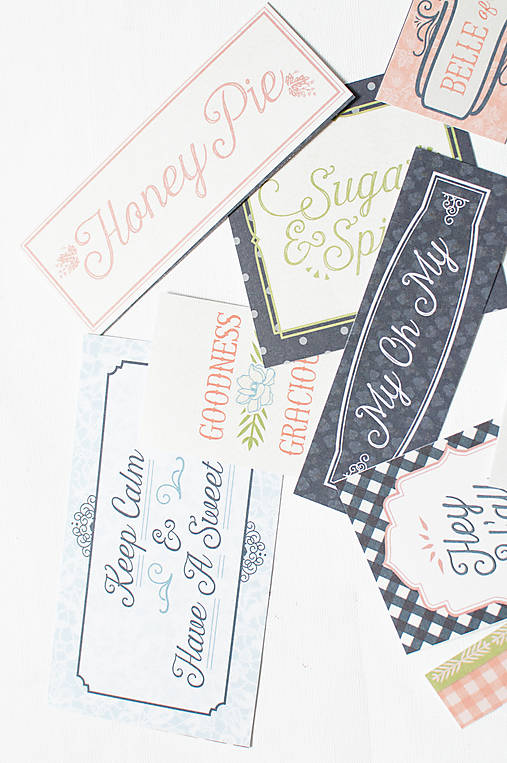 BELLE of
Honey Pie
Suga
& Spi
My Oh My
GOODNESS
GRACIOU
Hey
Y'all
Keep Calm
&
Have A Sweet